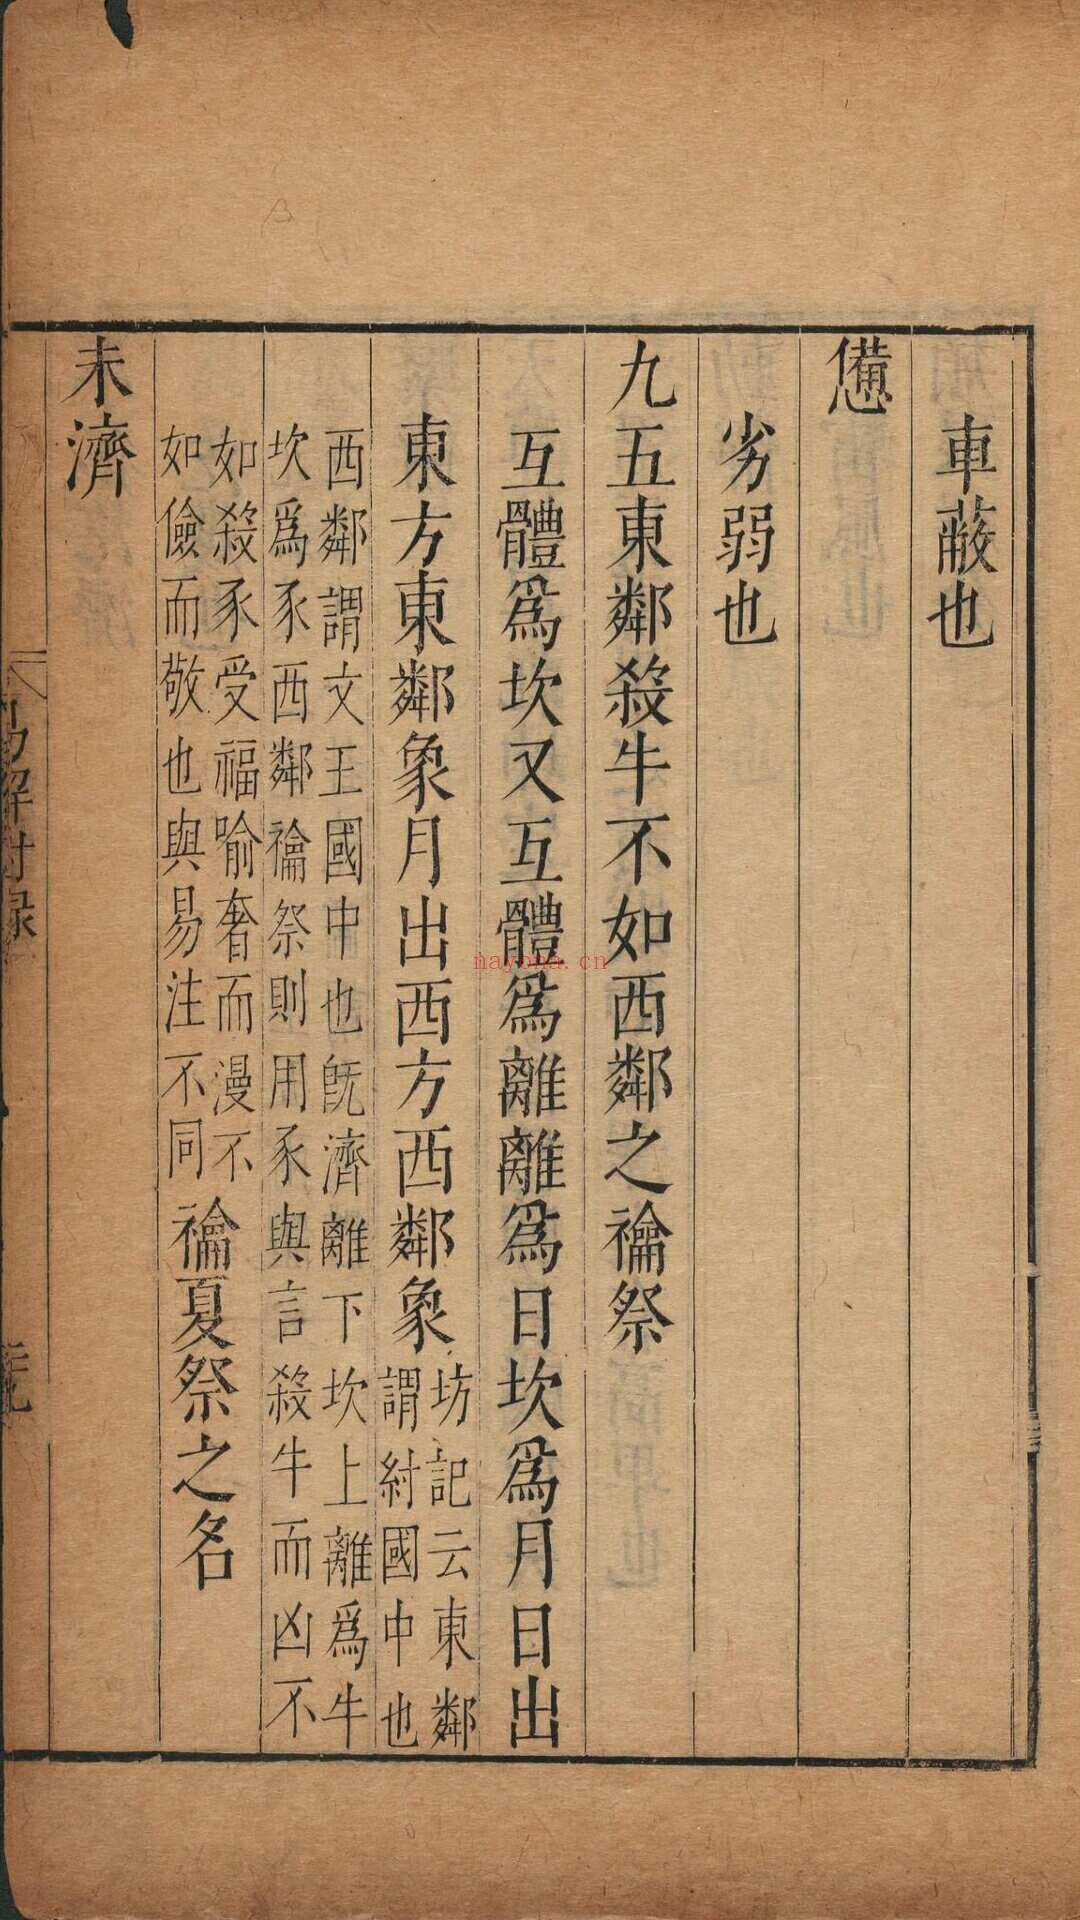 車蔽也
憊
劣弱也
九五東鄰殺牛不如西鄰之禴祭
互體爲坎又互體爲離離爲日坎爲月日出
東方東鄰象月出西方西鄰象
坊記云東鄰
謂紂國中也
西鄰謂文王國中也旣濟離下坎上離爲牛
坎爲豕西鄰禴祭則用豕與言殺牛而凶不
如殺豕受福喻奢而漫不
如儉而敬也與易注不同
禴夏祭之名
未濟
易解附録
nayona.cn